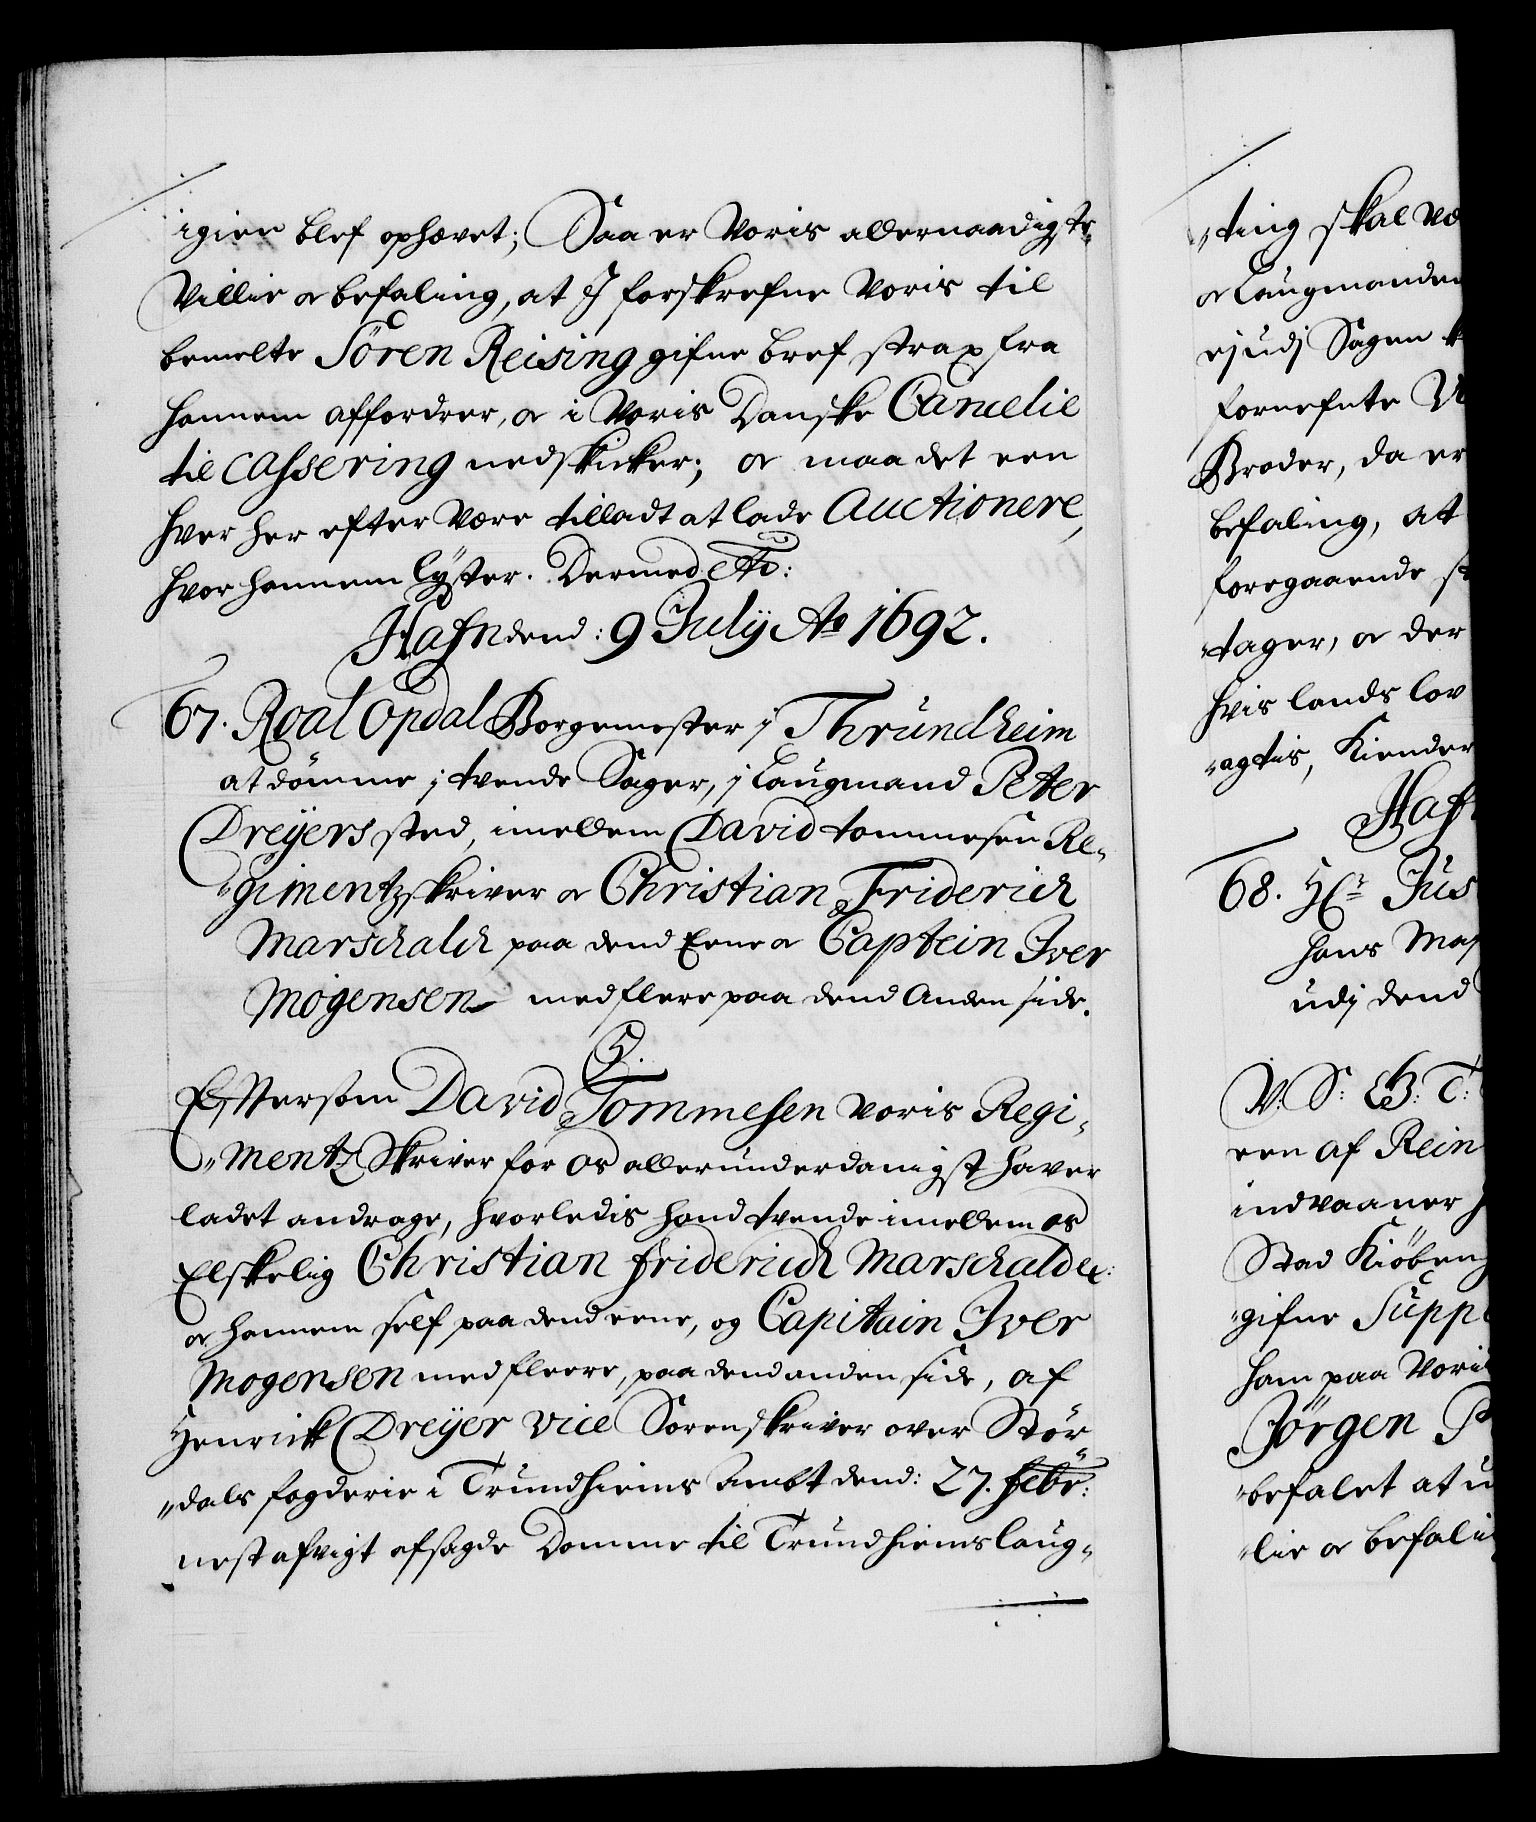 igien blef ophævet; Saa er Voris allernaadigste
Villie oc befaling, at I forskrefne Voris til
bemelte Sören Reising gifne bref strax fra
hannem affordrer, oc i Voris Danske Cancelie
til Cassering nedskicker; oc maa det een
hver her efter være tilladt at lade Auctionere,
hvor hannem lyster. Dermed etc:
Hafn dend: 9 Julij Ao 1692.
67. Roal Opdal Borgemester j Thrundheim
at dömme j tvende Sager, j Laugmand Peter
Dreyers sted, imellem David Tommesen Re„
„gimentzskriver oc Christian Friderich
Marschalch paa dend Eene oc Captein Iver
Mogensen med flere paa dend Anden side.
C5.
Eftersom David Tommesen Voris Regi„
„mentz Skriver for Os allerunderdanigst haver
ladet andrage, hvorledis hand tvende imellem os
Elskelig Christian Friderich Marschalck:
oc hannem self paa dend eene, og Capitain Iver
Mogensen med fleere, paa dend anden side, af
Henrick Dreyer vice Sorenskriver over Stör„
„dals fogderie i Trundhiems Ambt dend: 27. Febr:
nest afvigt afsagde Domme til Trundhiems laug„
„ting skal væ
oc Laugmanden
ejudj Sagen
fornefnte
Broder, da er
befaling, at
foregaaende
„tager, oc der
hvis lands lov
„agtis, Kiender
Hafn
68. Hr. Jus
hans Maj
udj dend
V. S: G. T:
een af Rein
indvaaner
Stad Kiöben
„gifne Supp
ham paa Voris
Jörgen
„befalet at
„lie oc befali